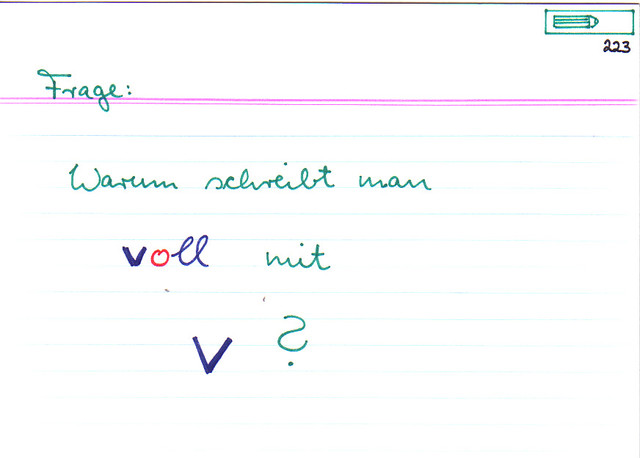 223
Frage:
Warum schreibt man
voll mit
V ?